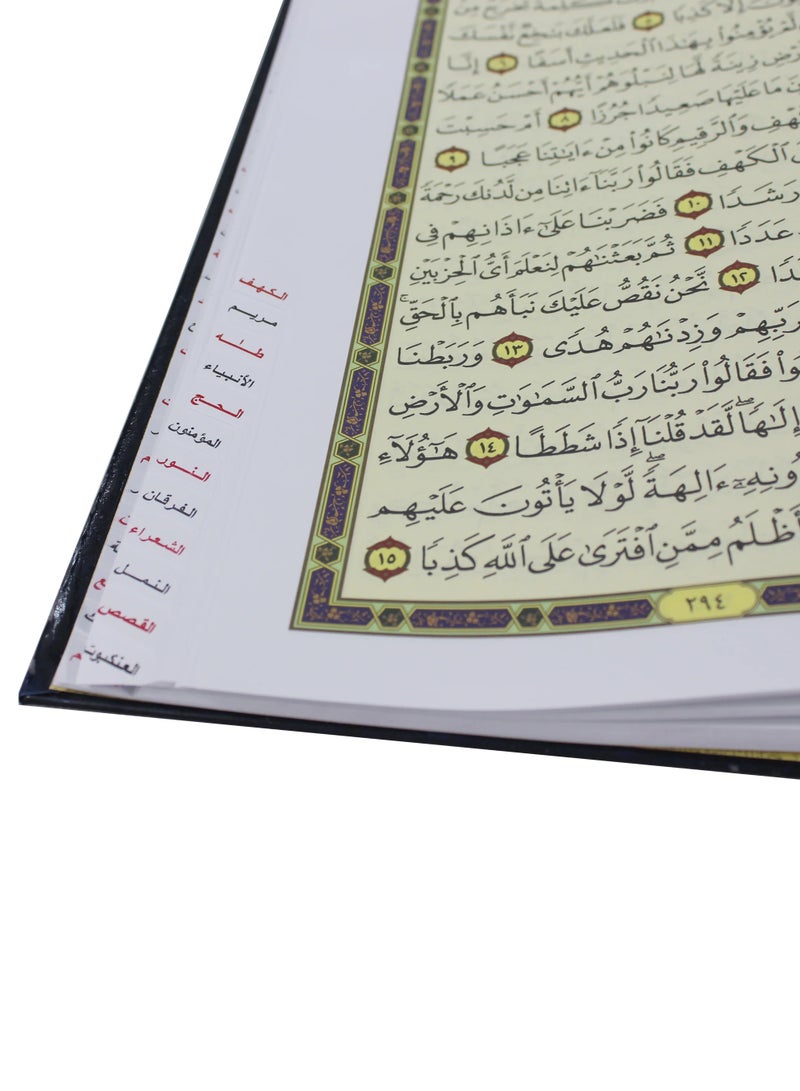 كلمة تخرج من
إلا كذبا ٥ فلعلك بخع نفسك
لم يؤمنوا بهذا الحديث أسفا ٦ إنا
زينة لها لنبلوهم أيهم أحسن عملا
ما عليها صعيدا جرزا ٨ أم حسبت
وَٱلرَّقِيمِ كَانُوا۟ مِنْ ءَايَٰتِنَا عَجَبًا ٩
ٱلْكَهْفِ فَقَالُوا۟ رَبَّنَآ ءَاتِنَا مِن لَّدُنكَ رَحْمَةً
رَشَدًا ١٠ فَضَرَبْنَا عَلَىٰٓ ءَاذَانِهِمْ فِى
عَدَدًا ١١ ثُمَّ بَعَثْنَٰهُمْ لِنَعْلَمَ أَىُّ ٱلْحِزْبَيْنِ
١٢ نَّحْنُ نَقُصُّ عَلَيْكَ نَبَأَهُم بِٱلْحَقِّ ۚ
وَزِدْنَٰهُمْ هُدًى ١٣ وَرَبَطْنَا
فَقَالُوا۟ رَبُّنَا رَبُّ ٱلسَّمَٰوَٰتِ وَٱلْأَرْضِ
إِلَٰهًا ۖ لَّقَدْ قُلْنَآ إِذًا شَطَطًا ١٤ هَٰٓؤُلَآءِ
ءَالِهَةً ۖ لَّوْلَا يَأْتُونَ عَلَيْهِم
أَظْلَمُ مِمَّنِ ٱفْتَرَىٰ عَلَى ٱللَّهِ كَذِبًا ١٥
٢٩٤
الكهف
مريم
طـٰه
الأنبياء
الحج
المؤمنون
النور
الفرقان
الشعراء
النمل
القصص
العنكبوت